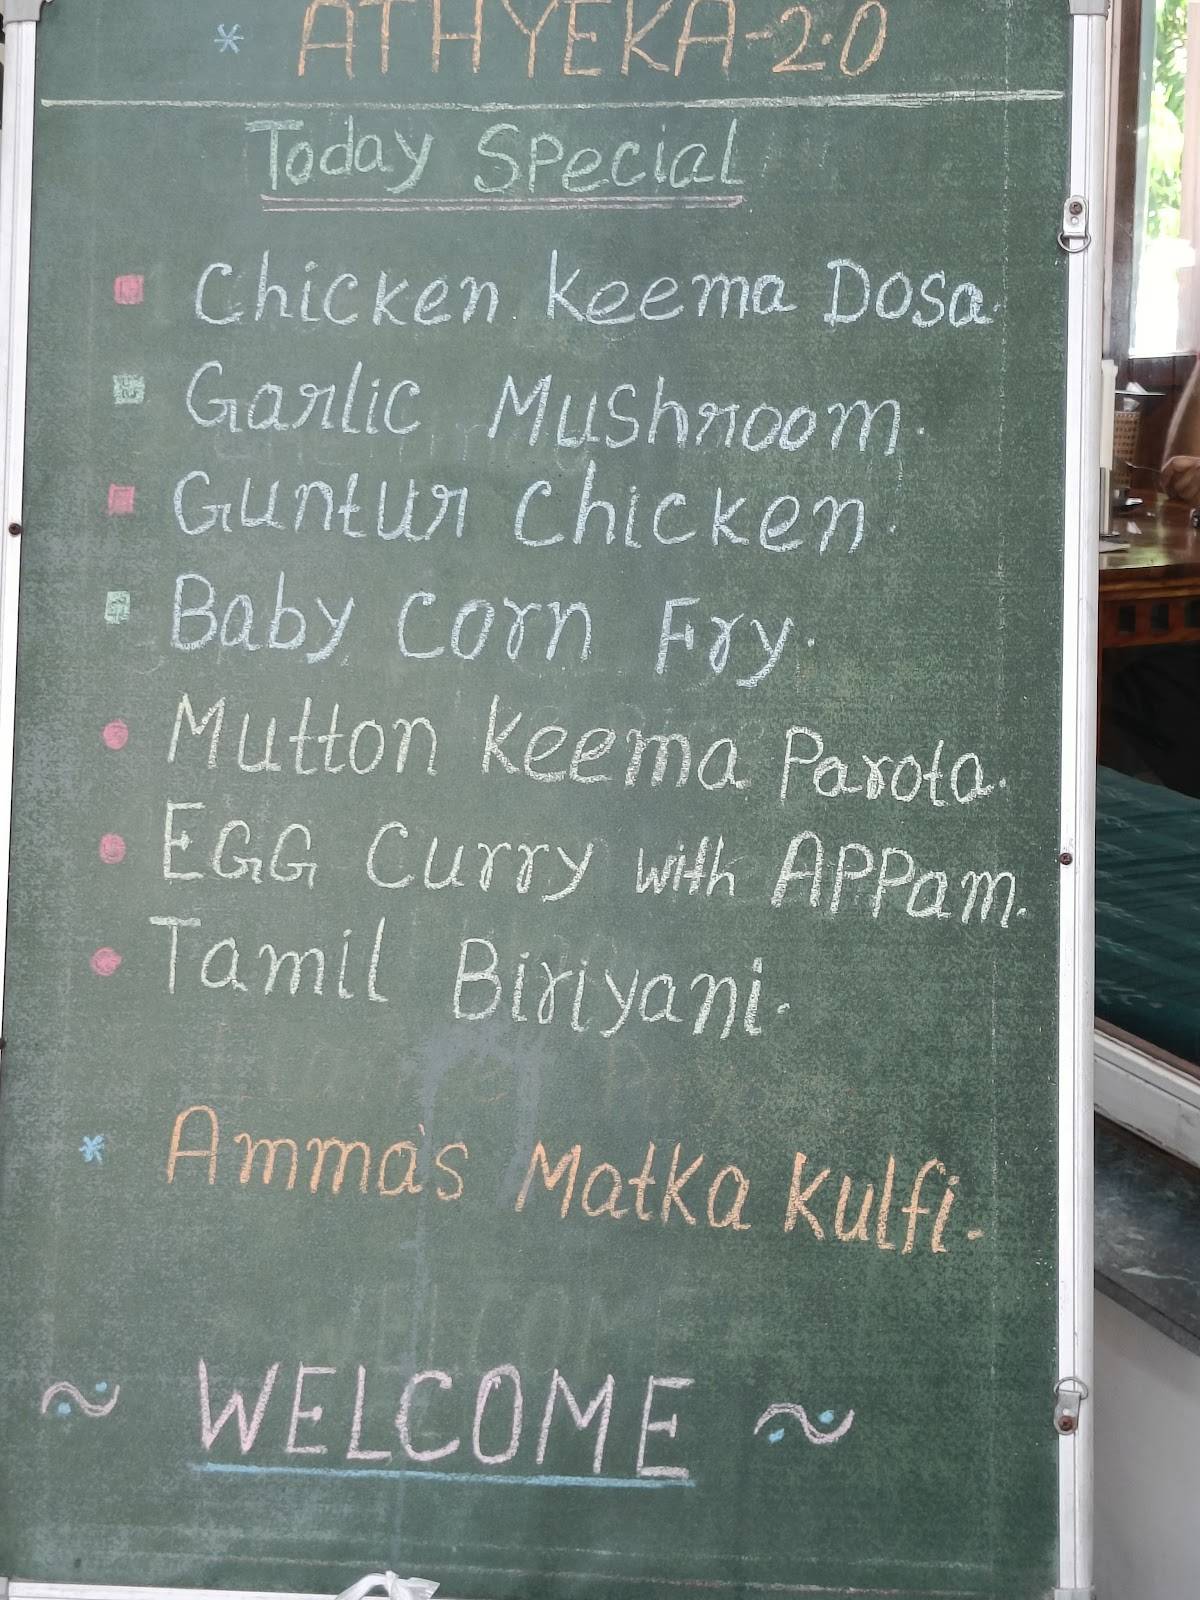 * ATHYEKA-2.0
Today Special
Chicken Keema Dosa.
Garlic Mushroom.
Guntur Chicken.
Baby Corn Fry.
Mutton Keema Parota.
EGG Curry with APPam.
Tamil Biriyani.
* Amma's Matka Kulfi.
~ WELCOME ~